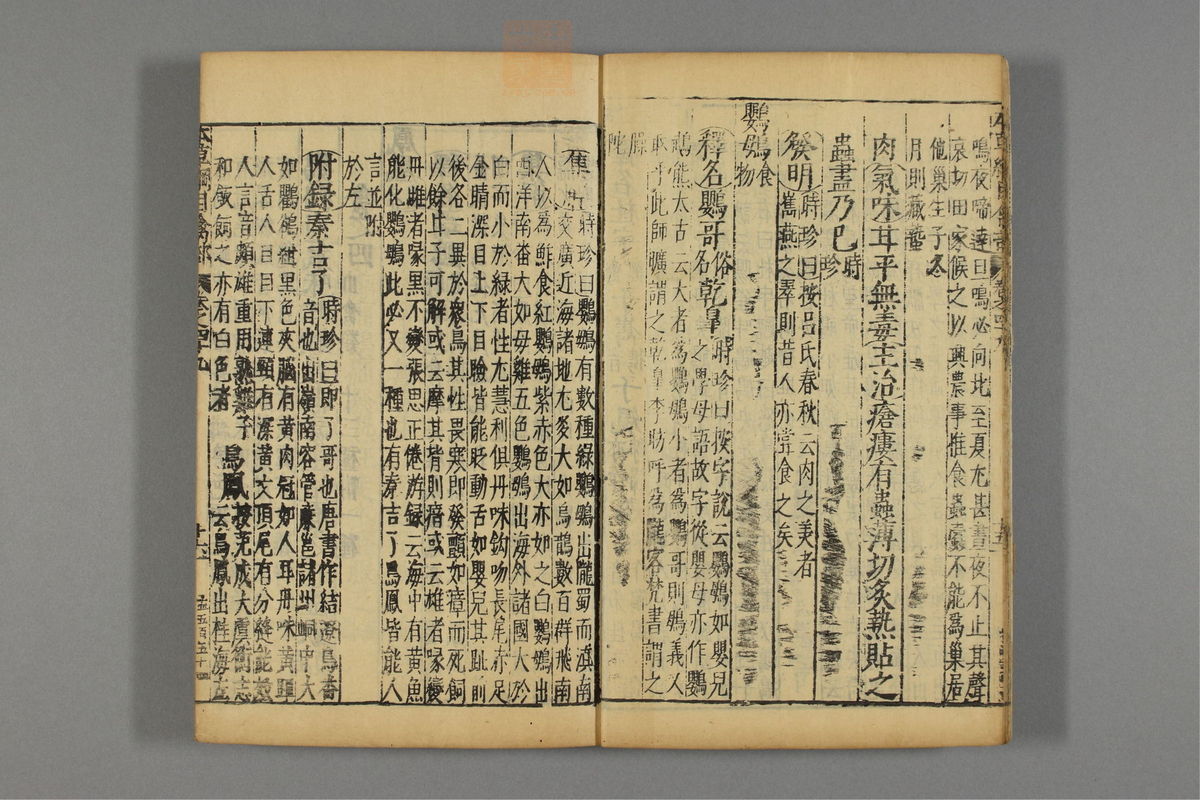 鳴夜啼達旦鳴必向北至夏尤甚晝夜不止其聲
哀切田家候之以興農事惟食蟲蠹不能為巢居
他巢生子冬
月則藏蟄
肉氣味甘平無毒主治瘡瘻有蟲薄切炙熱貼之
蟲盡乃已時珍
發明時珍曰按呂氏春秋云肉之美者
雟燕之翠則昔人亦嘗食之矣
鸚䳇食物
釋名鸚哥俗名乾皐時珍曰按字說云鸚䳇如嬰兒
之學母語故字從嬰母亦作鸚
鵡熊太古云大者為鸚䳇小者為鸚哥則䳇義又
取乎此師曠謂之乾皐李昉呼為隴客梵書謂之
臊陀
集解時珍曰鸚䳇有數種綠鸚䳇出隴蜀而滇南
交廣近海諸地尤多大如烏鵲數百群飛南
人以為鮓食紅鸚䳇紫赤色大亦如之白鸚䳇出
西洋南番大如母雞五色鸚䳇出海外諸國大於
白而小於綠者性尤慧利俱丹咮鈎吻長尾赤足
金睛深目上下目瞼皆能眨動舌如嬰兒其趾前
後各二異於衆鳥其性畏寒即發顫如瘴而死飼
以餘甘子可解或云摩其背則瘖或云雄者喙變
丹雌者喙黑不變張思正倦游録云海中有黄魚
能化鸚䳇此必又一種也有秦吉了鳥鳳皆能人
言並附
於左
附録秦吉了時珍曰即了哥也唐書作結遼鳥番
音也出嶺南容管廉邕諸州峒中大
如鸜鵒紺黒色夾腦有黄肉冠如人耳丹咮黄距
人舌人目目下連頸有深黄文頂尾有分縫能效
人言音頗雄重用熟雞子
和飯飼之亦有白色者 鳥鳳按范成大虞衡志
云鳥鳳出桂海左